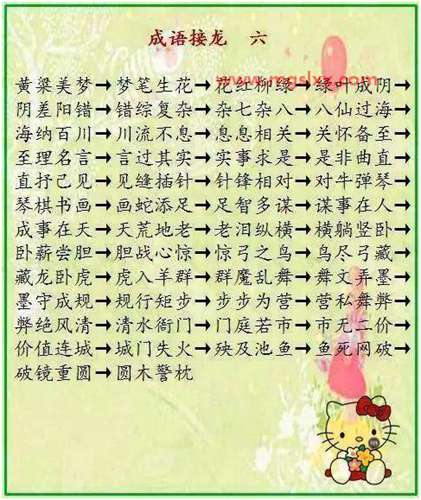 成语接龙 六
www.mgslxz.com
黄粱美梦→梦笔生花→花红柳绿→绿叶成阴→
阴差阳错→错综复杂→杂七杂八→八仙过海→
海纳百川→川流不息→息息相关→关怀备至→
至理名言→言过其实→实事求是→是非曲直→
直抒己见→见缝插针→针锋相对→对牛弹琴→
琴棋书画→画蛇添足→足智多谋→谋事在人→
成事在天→天荒地老→老泪纵横→横躺竖卧→
卧薪尝胆→胆战心惊→惊弓之鸟→鸟尽弓藏→
藏龙卧虎→虎入羊群→群魔乱舞→舞文弄墨→
墨守成规→规行矩步→步步为营→营私舞弊→
弊绝风清→清水衙门→门庭若市→市无二价→
价值连城→城门失火→殃及池鱼→鱼死网破→
破镜重圆→圆木警枕